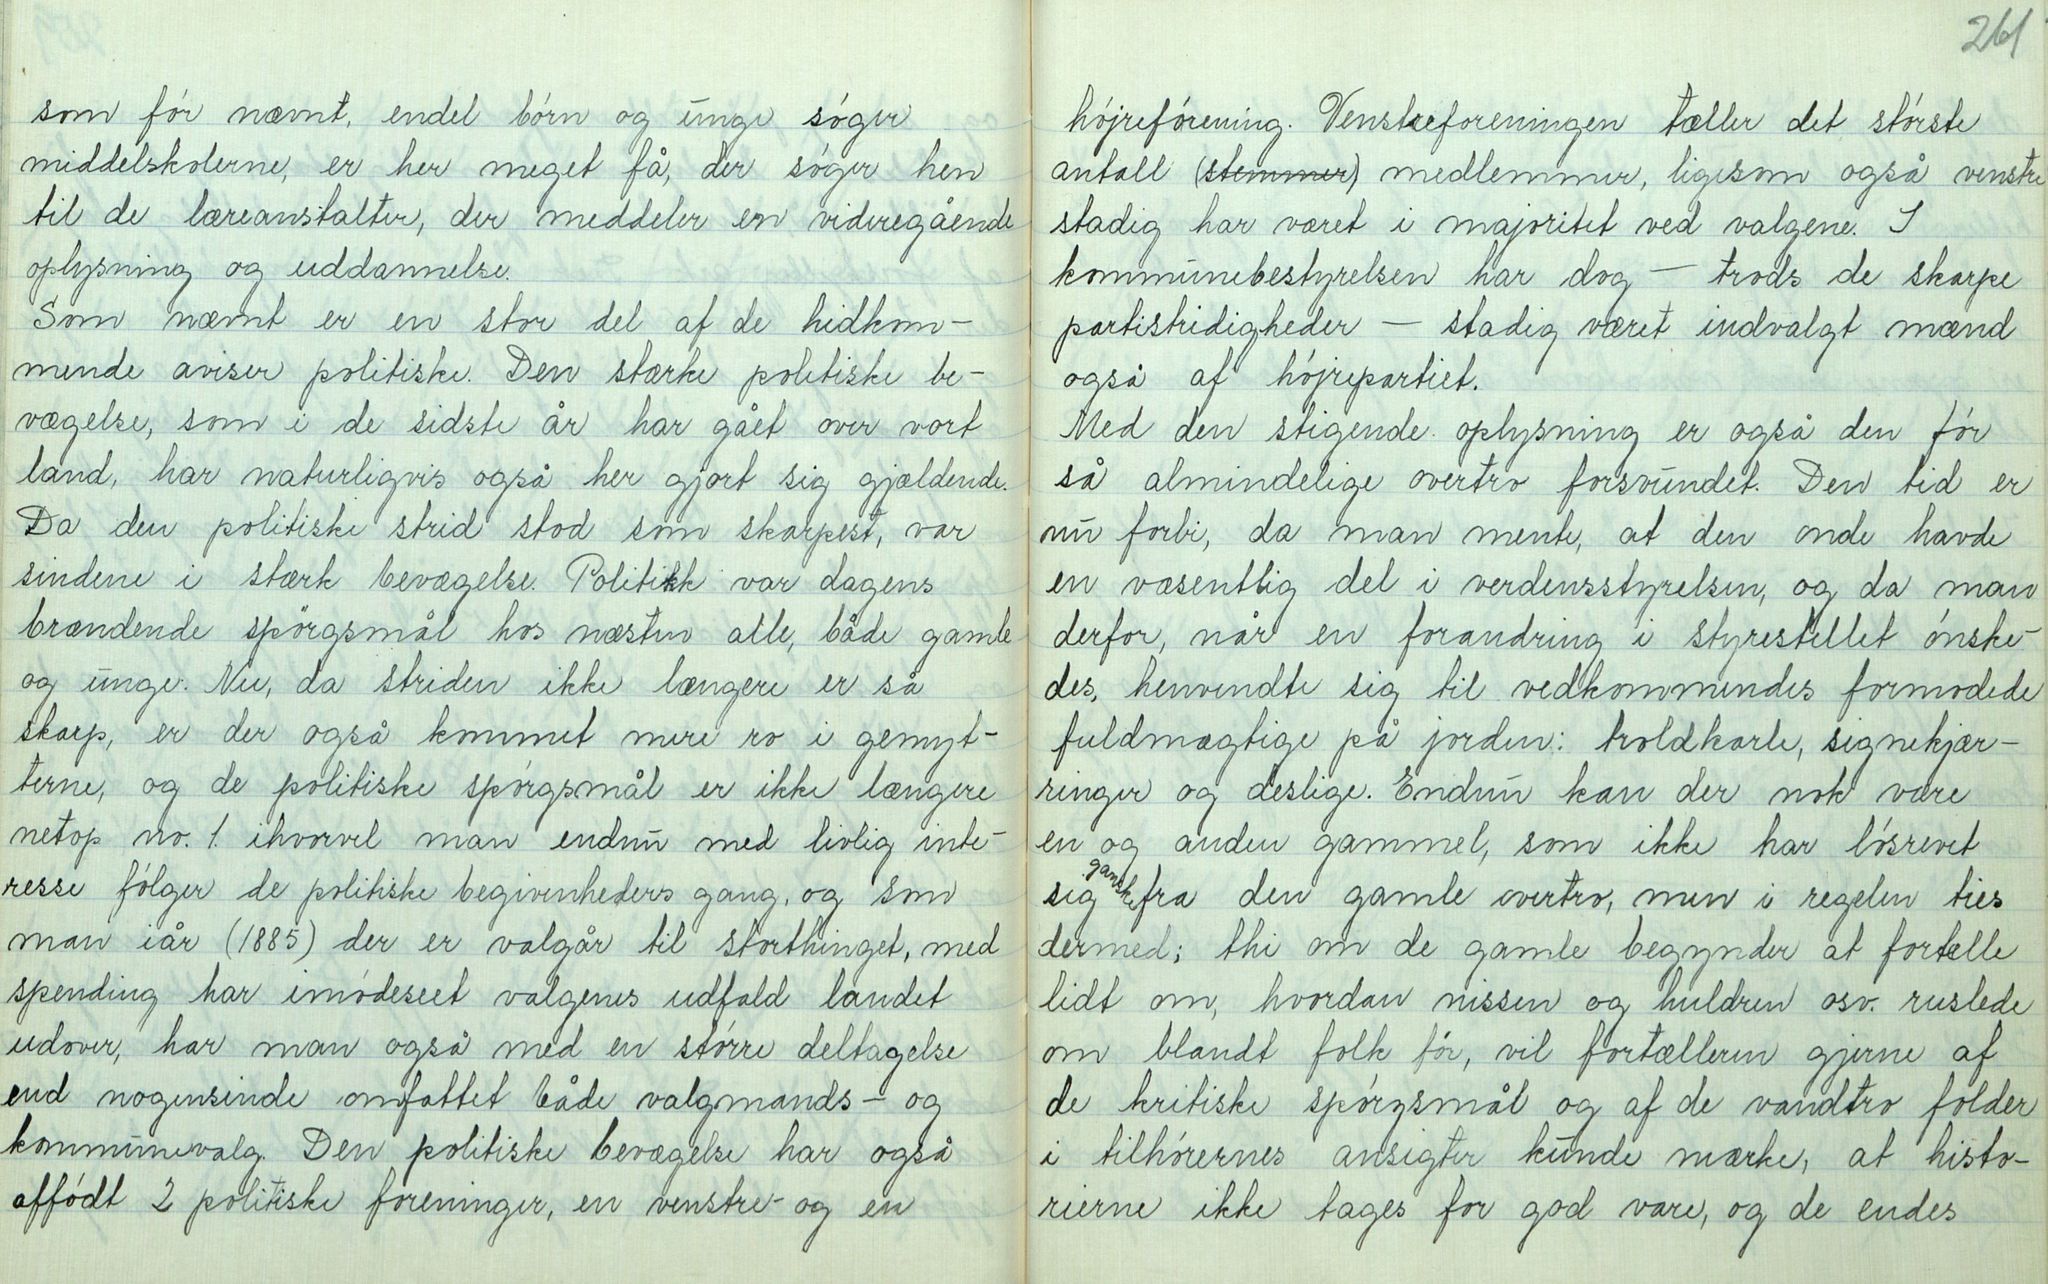 som fór nævnt, endel børn og unge søger
middelskolerne, er her meget få, der søger hen
til de læreanstalter, der meddeler en videregående
oplysning og uddannelse.
Som nævnt er en stor del af de hidkom-
mende aviser politiske. Den stærke politiske be-
vægelse, som i de sidste år har gået over vort
land, har naturligvis også her gjort sig gjældende.
Da den politiske strid stod som skarpest, var
sindene i stærk bevægelse. Politikk var dagens
brændende spørgsmål hos næsten alle, både gamle
og unge. Nu, da striden ikke længere er så
skarp, er der også kommet mere ro i gemyt-
terne, og de politiske spørgsmål er ikke længere
netop no. 1. ihvorvel man endnu med livlig inte-
resse følger de politiske begivenheders gang, og som
man iår (1885) der er valgår til storthinget, med
spending har imødeseet valgenes udfald landet
udover, har man også med en større deltagelse
end nogensinde omfattet både valgmands- og
kommunevalg. Den politiske bevægelse har også
affødt 2 politiske foreninger, en venstre- og en
261
højreførening. Venstreforeningen tæller det største
antall (stemmer) medlemmer, ligesom også venstre
stadig har været i majoritet ved valgene. I
kommunebestyrelsen har dog – trods de skarpe
partistridigheder – stadig været indvalgt mænd
også af højrepartiet.
Med den stigende oplysning er også den før
så almindelige overtro forsvundet. Den tid er
nu forbi, da man mente, at den onde havde
en væsentlig del i verdensstyrelsen, og da man
derfor, når en forandring i styrestellet ønske-
des, henvendte sig til vedkommendes formodede
fuldmægtige på jorden: troldkarle, signekjær-
ringer og deslige. Endnu kan der nok være
en og anden gammel, som ikke har løsrevet
sig ganske fra den gamle overtro, men i regelen ties
dermed; thi om de gamle begynder at fortælle
lidt om, hvordan nissen og huldren osv. ruslede
om blandt folk før, vil fortælleren gjerne af
de kritiske spørgsmål og af de vandtro folder
i tilhørernes ansigter kunde mærke, at histo-
rierne ikke tages for god vare, og de endes